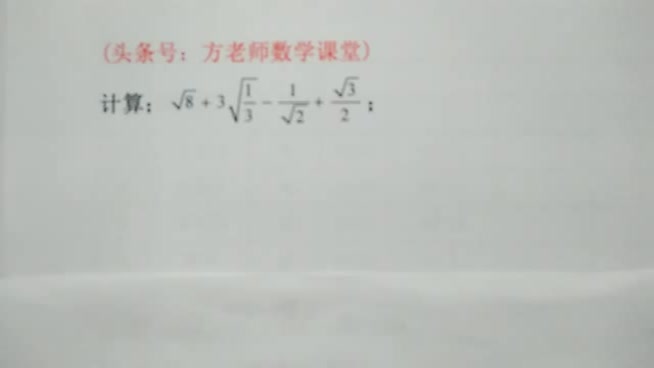 (头条号：方老师数学课堂)
计算：√8 + 3√(1/3) - 1/√2 + √3/2；